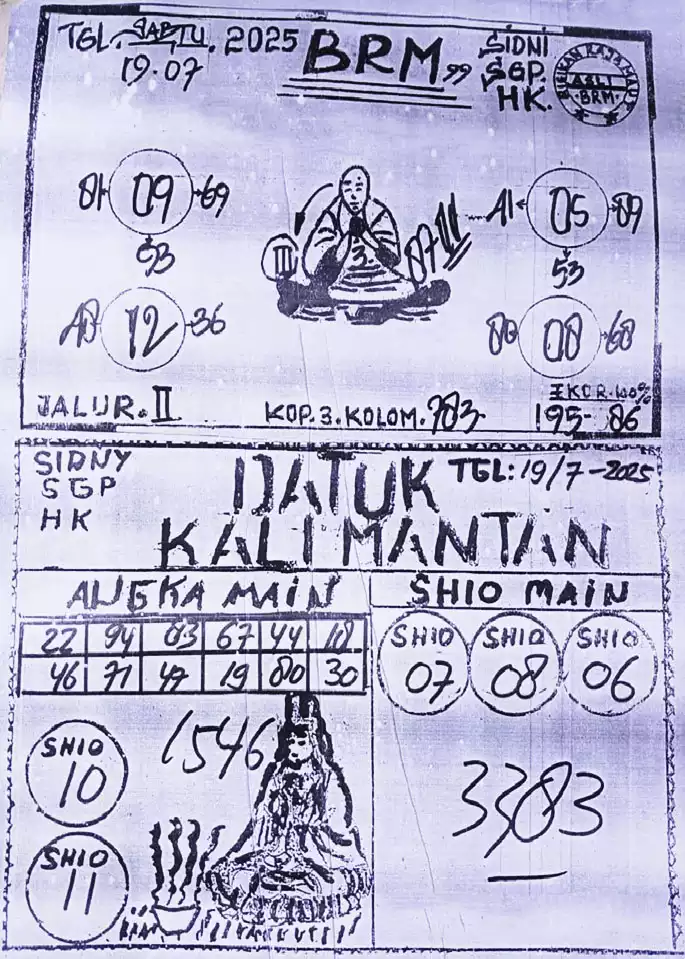 TGL. SABTU. 2025
19.07
BRM 99
SIDNI
SGP.
HK.
ASLI
BRM.
09 69
53
12 36
III
3
A1 05 89
53
08 68
JALUR. II
KOP. 3. KOLOM. 783
EKOR. 100%
195- 86
SIDNY
SGP
HK
DATUK
KALIMANTAN
TGL: 19/7-2025
ANGKA MAIN
22 94 03 67 44 18
46 71 47 19 80 30
SHIO MAIN
SHIO
07
SHIO
08
SHIO
06
SHIO
10
1546
SHIO
11
3383